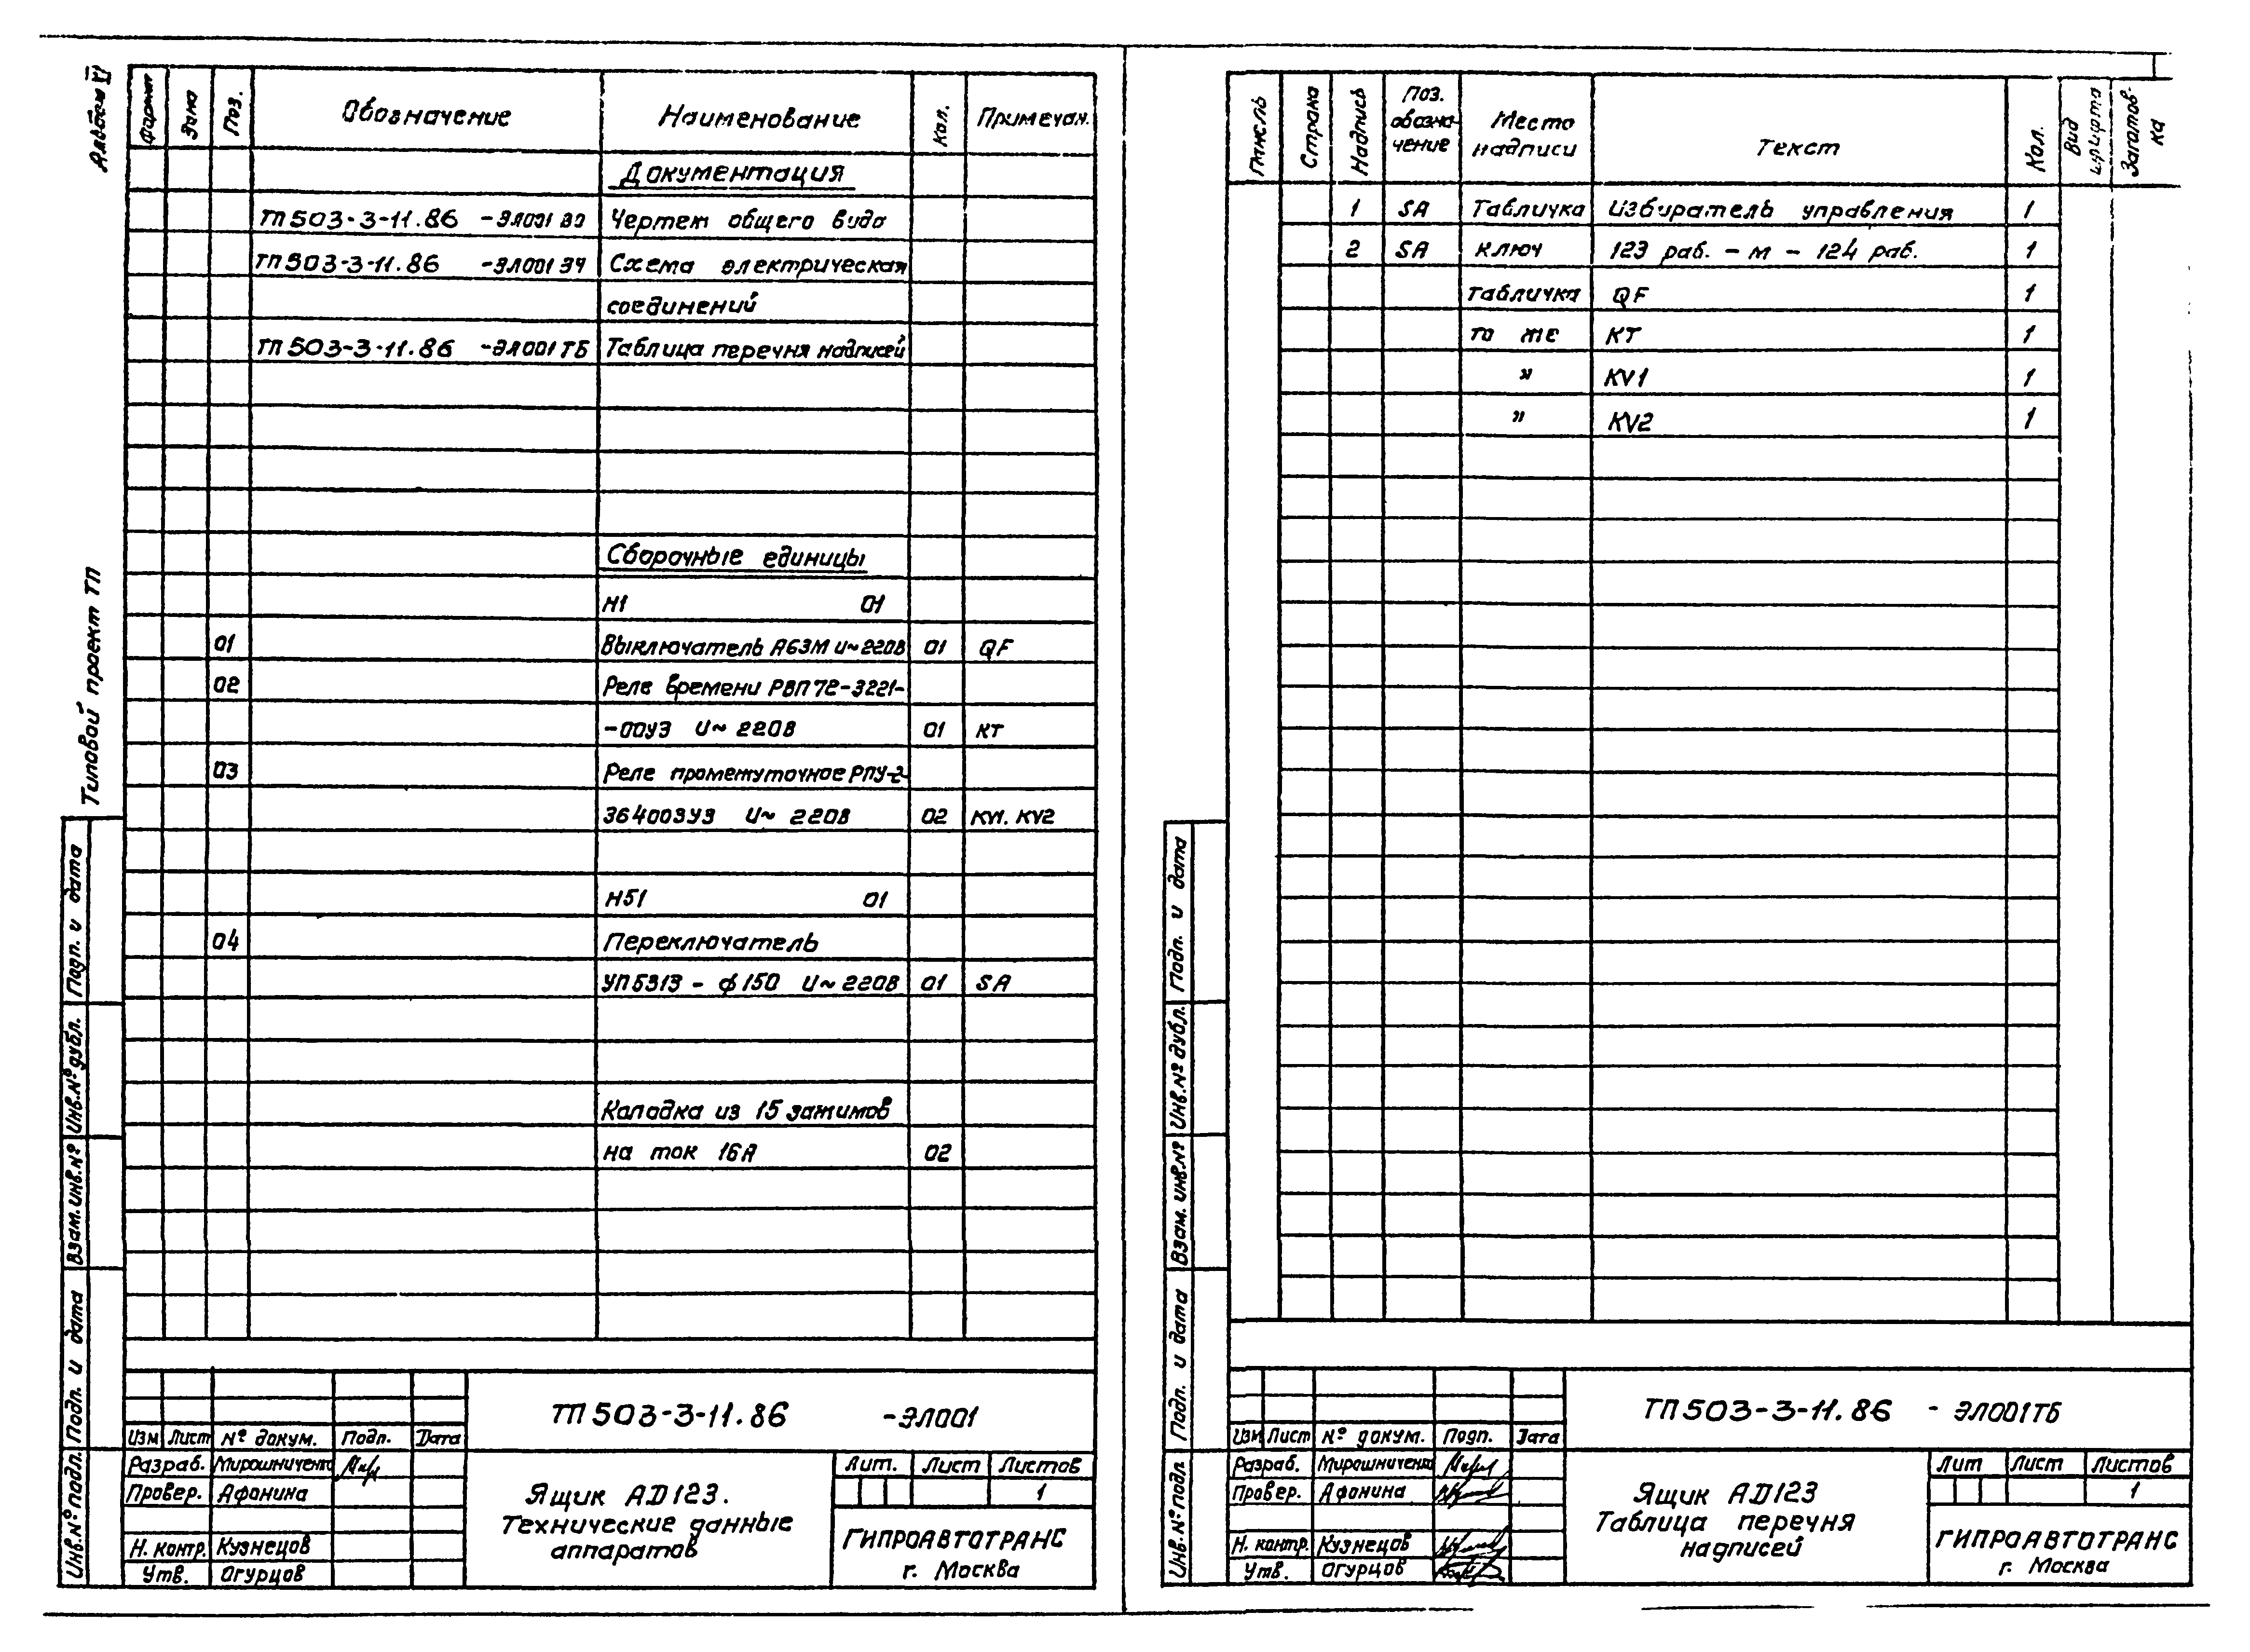 Альбом IV
Формат Зона Поз. Обозначение Наименование Кол. Примечан.
Документация
ТП 503-3-11.86 -ЭЛ001 ВО Чертеж общего вида
ТП 503-3-11.86 -ЭЛ001 Э4 Схема электрическая
соединений
ТП 503-3-11.86 -ЭЛ001 ТБ Таблица перечня надписей
Сборочные единицы
Н1 01
01 Выключатель А63М U~220В 01 QF
02 Реле времени РВП72-3221-
-00У3 U~ 220В 01 КТ
03 Реле промежуточное РПУ-2-
364003У3 U~ 220В 02 KV1. KV2
Н51 01
04 Переключатель
УП5313 - ф150 U~220В 01 SA
Колодка из 15 зажимов
на ток 16А 02
Типовой проект ТП
Подп. и дата
Инв.№ дубл.
Взам. инв.№
Подп. и дата
Инв.№ подл.
ТП 503-3-11.86 -ЭЛ001
Изм Лист № докум. Подп. Дата
Разраб. Мирошниченко
Провер. Афонина
Н. контр. Кузнецов
Утв. Огурцов
Ящик АД123.
Технические данные
аппаратов
Лит. Лист Листов
1
ГИПРОАВТОТРАНС
г. Москва
Панель Строка Надпись Поз. обозначение Место надписи Текст Кол. Вид шрифта Заготов-ка
1 SA Табличка Избиратель управления 1
2 SA Ключ 123 раб. - м - 124 раб. 1
Табличка QF 1
то же КТ 1
" KV1 1
" KV2 1
Подп. и дата
Инв.№ дубл.
Взам. инв.№
Подп. и дата
Инв.№ подл
ТП 503-3-11.86 - ЭЛ001ТБ
Изм Лист № докум. Подп. Дата
Разраб. Мирошниченко
Провер. Афонина
Н. контр. Кузнецов
Утв. Огурцов
Ящик АД123
Таблица перечня
надписей
Лит Лист Листов
1
ГИПРОАВТОТРАНС
г. Москва